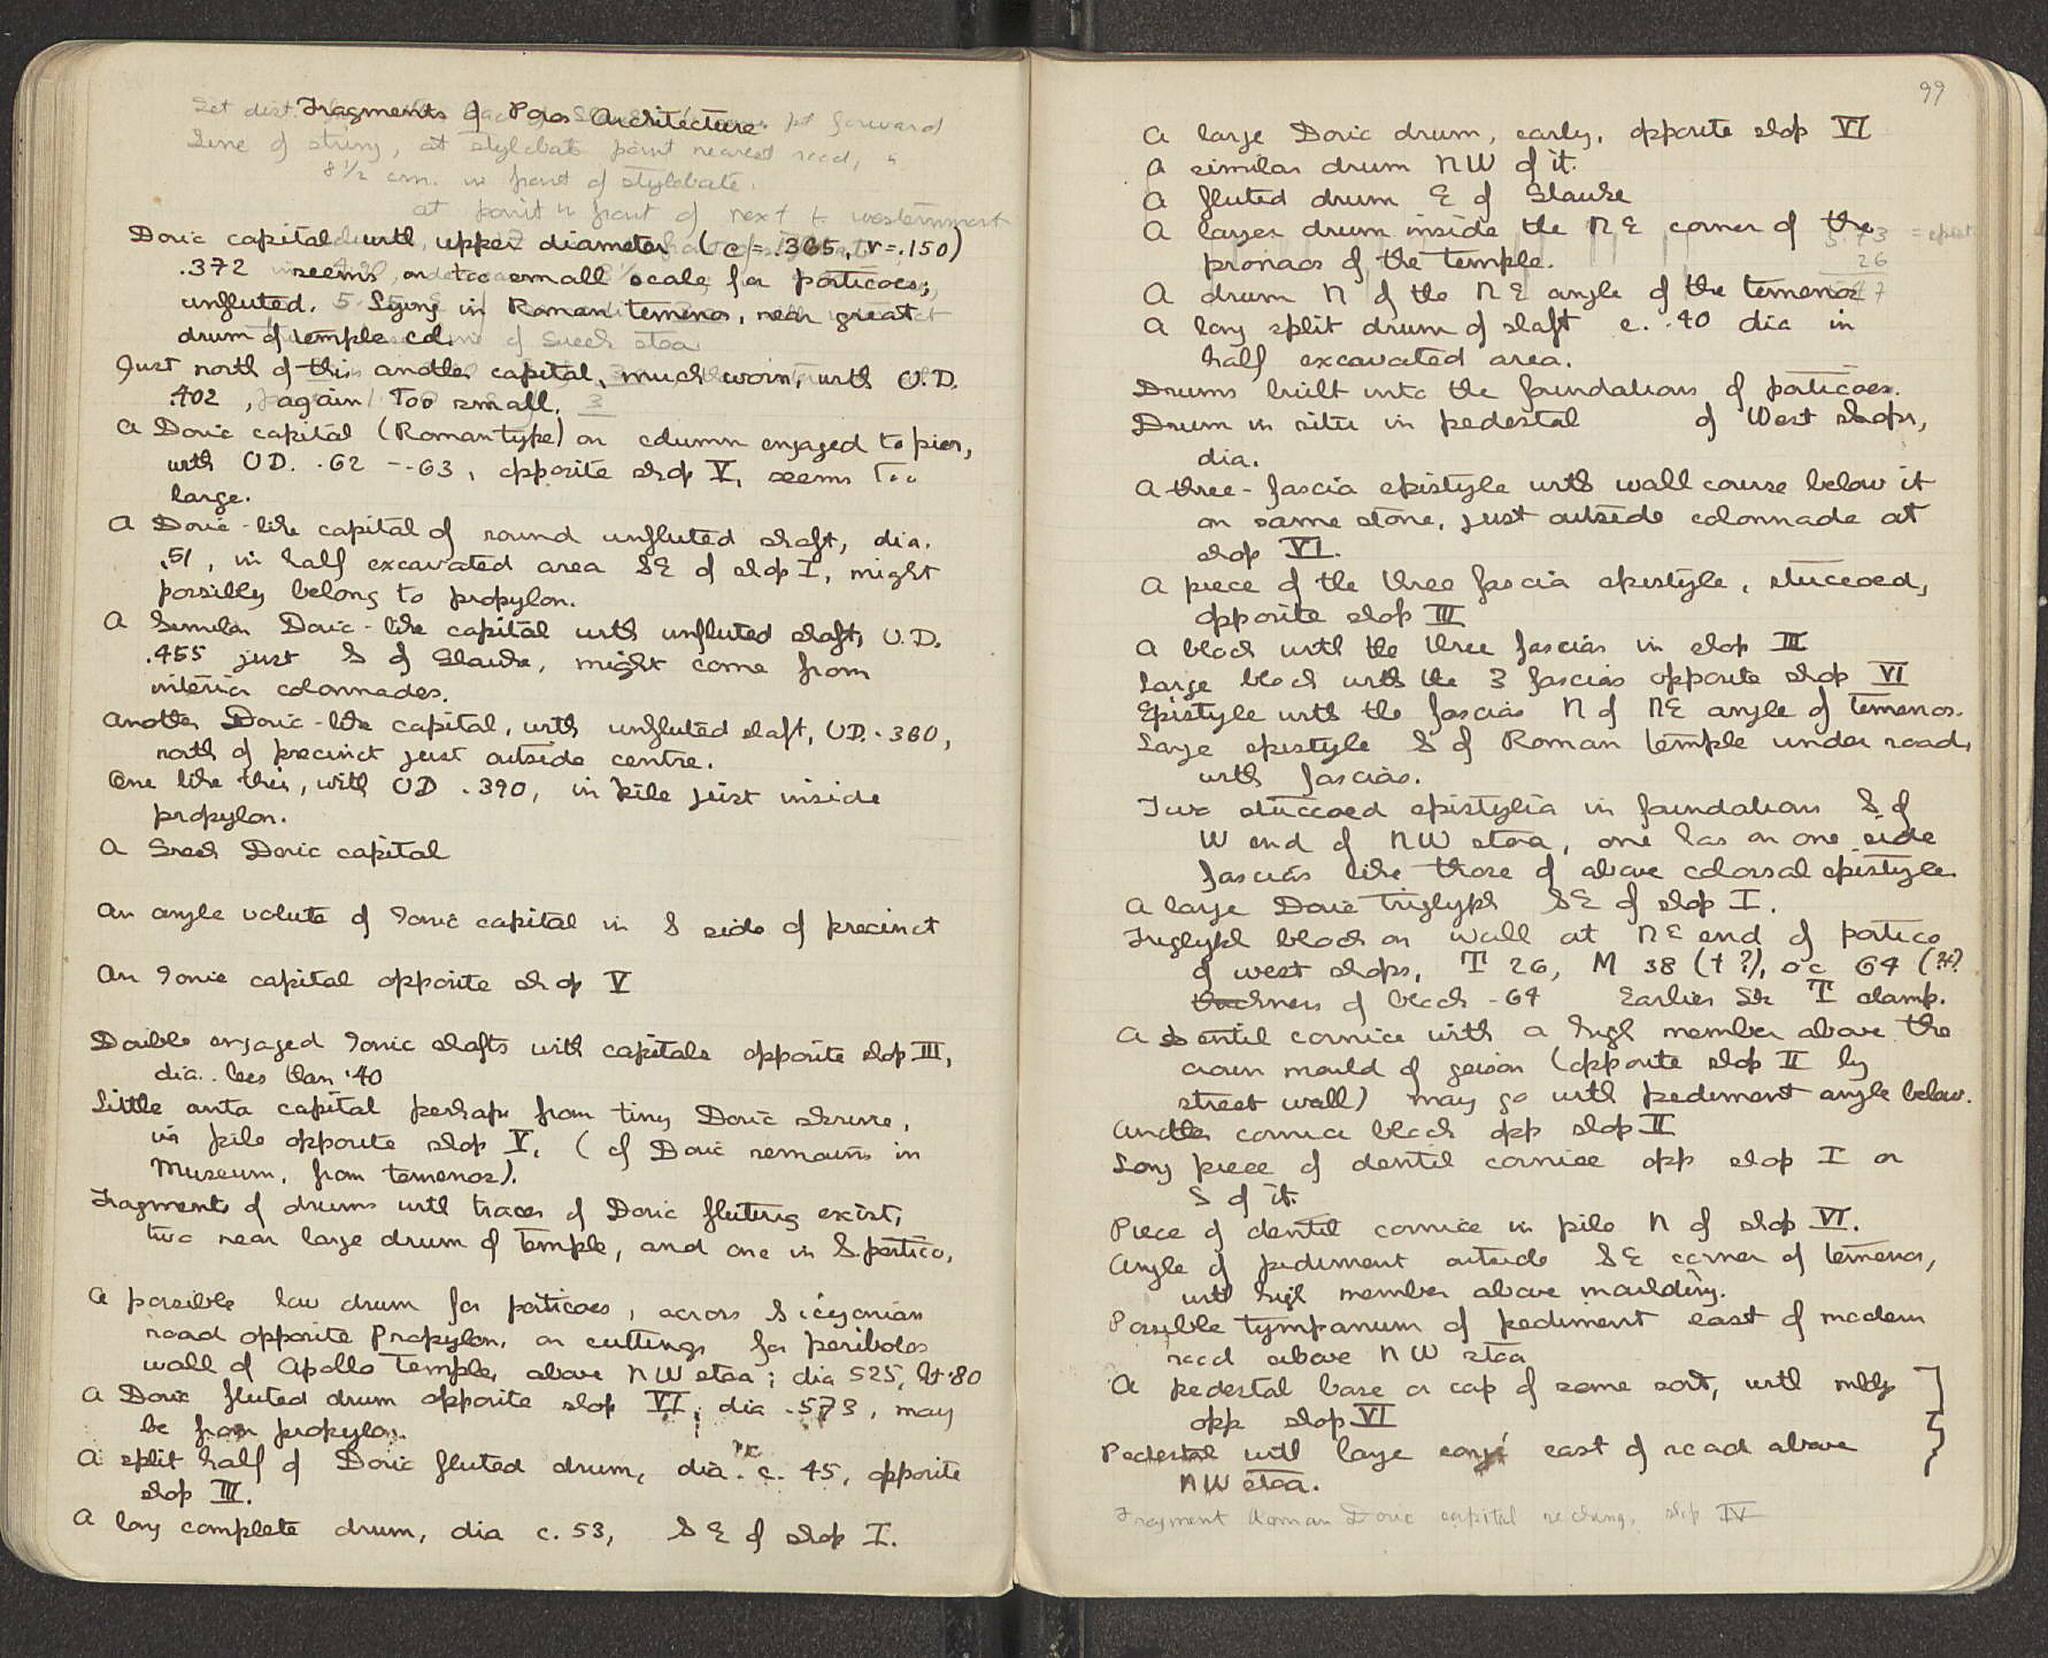 Fragments of Poros Architecture
Set dist. pt forward
line of string, at stylobate point nearest road, is
8 1/2 cm. in front of stylobate.
at point in front of next to westernmost
Doric capital with upper diameter (c = .365, r = .150)
.372 seems on too small scale for porticoes;
unfluted. Lying in Roman temenos, near great
drum of temple col.
of Greek stoa
Just north of this another capital, much worn, with U.D.
.402, again too small.
A Doric capital (Roman type) on column engaged to pier,
with UD. .62 - .63, opposite shop V, seems too
large.
A Doric-like capital of round unfluted shaft, dia.
.51, in half excavated area SE of shop I, might
possibly belong to propylon.
A similar Doric-like capital with unfluted shaft, U.D.
.455 just S of Glauke, might come from
interior colonnades.
Another Doric-like capital, with unfluted shaft, UD. .360,
north of precinct just outside centre.
One like this, with UD .390, in pile just inside
propylon.
A Greek Doric capital
An angle volute of Ionic capital in S side of precinct
An Ionic capital opposite shop V
Double engaged Ionic shafts with capitals opposite shop III,
dia. less than .40
Little anta capital perhaps from tiny Doric shrine,
in pile opposite shop V. (cf Doric remains in
Museum, from temenos).
Fragments of drums with traces of Doric fluting exist,
two near large drum of temple, and one in S. portico,
A possible low drum for porticoes, across Sicyonian
road opposite Propylon, on cuttings for peribolos
wall of Apollo Temple, above NW stoa; dia 525, ht .80
A Doric fluted drum opposite shop VI, dia .573, may
be from propylon.
A split half of Doric fluted drum, dia. c. 45, opposite
shop III.
A long complete drum, dia c. 53, SE of shop I.
99
A large Doric drum, early, opposite shop VI
A similar drum NW of it.
A fluted drum E of Glauke
A larger drum inside the NE corner of the
5.73 = epist
pronaos of the temple.
26
A drum N of the NE angle of the temenos
A long split drum of shaft c. .40 dia in
half excavated area.
Drums built into the foundations of porticoes.
Drum in situ in pedestal of West shops,
dia.
A three-fascia epistyle with wall course below it
on same stone, just outside colonnade at
shop VI.
A piece of the three fascia epistyle, stuccoed,
opposite shop III
A block with the three fascias in shop III
Large block with the 3 fascias opposite shop VI
Epistyle with the fascias N of NE angle of temenos.
Large epistyle S of Roman temple under road,
with fascias.
Two stuccoed epistylia in foundations S of
W end of NW stoa, one has on one side
fascias like those of above colossal epistyle.
A large Doric triglyph SE of shop I.
Triglyph block on wall at NE end of portico
of west shops, T 26, M 38 (+?), oc 64 (?+?
thickness of block .64 Earlier Gk T clamp.
A dentil cornice with a high member above the
crown mould of geison (opposite shop II by
street wall) may go with pediment angle below.
Another cornice block opp shop II
Long piece of dentil cornice opp shop I or
S of it.
Piece of dentil cornice in pile N of shop VI.
Angle of pediment outside SE corner of temenos,
with high member above moulding.
Possible tympanum of pediment east of modern
road above NW stoa
A pedestal base or cap of some sort, with mldg
opp shop VI
Pedestal with large east of road above
NW stoa.
Fragment Roman Doric capital shop IV